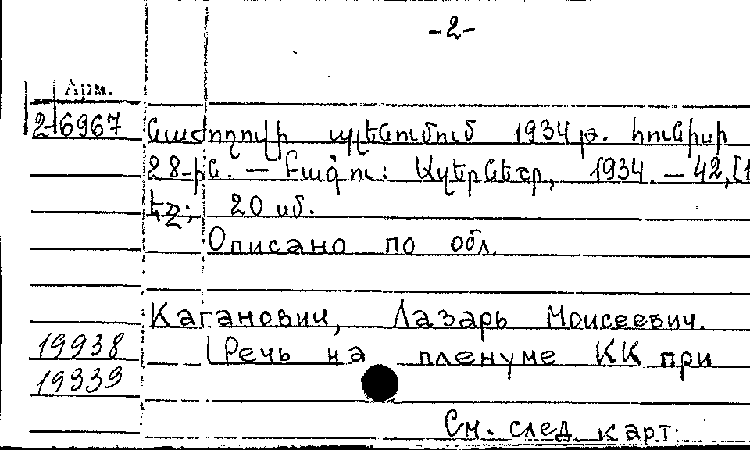 -2-
Арм.
2-6967 նաժողովի պլենումում 1934թ. հունիսի
28-ին. — Բաքու: Ազերնեշր, 1934. — 42,[1
էջ; 20 սմ.
Описано по обл.
Каганович, Лазарь Моисеевич.
19938 Речь на пленуме КК при
19939
См. след. карт.